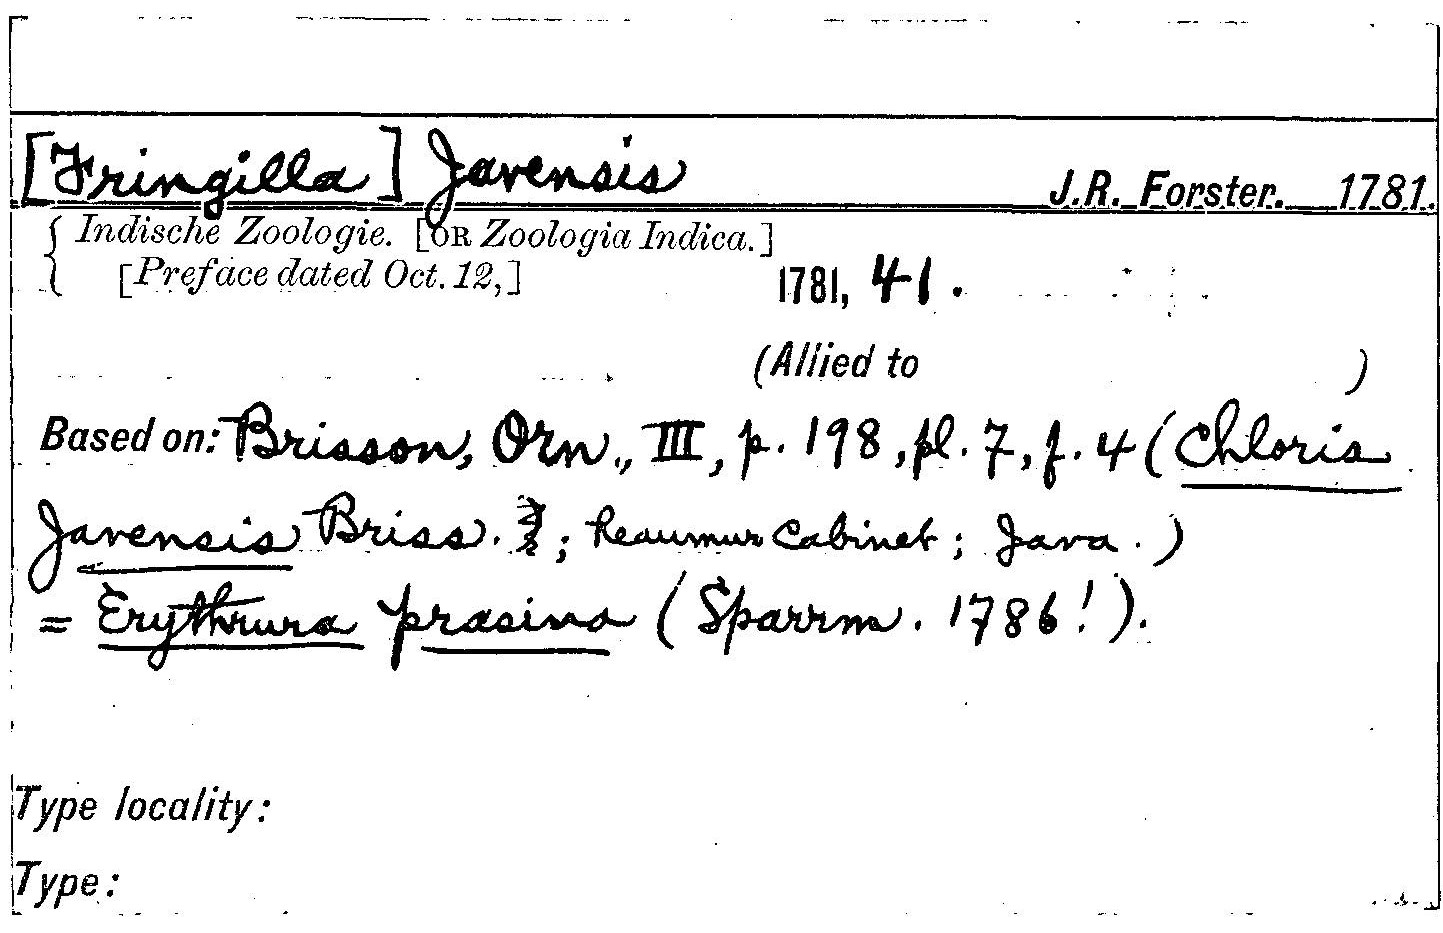 [Fringilla] Javensis J.R. Forster. 1781.
{ Indische Zoologie. [OR Zoologia Indica.]
[Preface dated Oct. 12,] 1781, 41.
(Allied to )
Based on: Brisson, Orn., III, p. 198, pl. 7, f. 4 (Chloris
Javensis Briss. ; Reaumur Cabinet ; Java.)
= Erythrura prasina (Sparrm. 1786!).
Type locality:
Type: